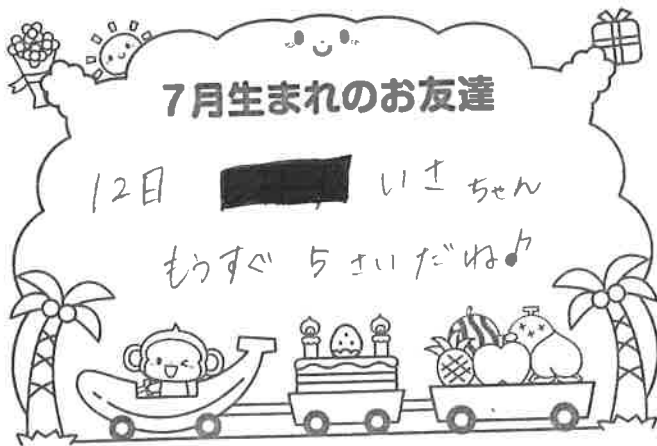 7月生まれのお友達
12日 いさちゃん
もうすぐ 5さいだね♪